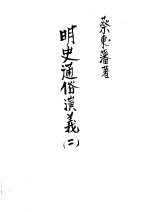 蔡東藩著
明史通俗演義
(二)